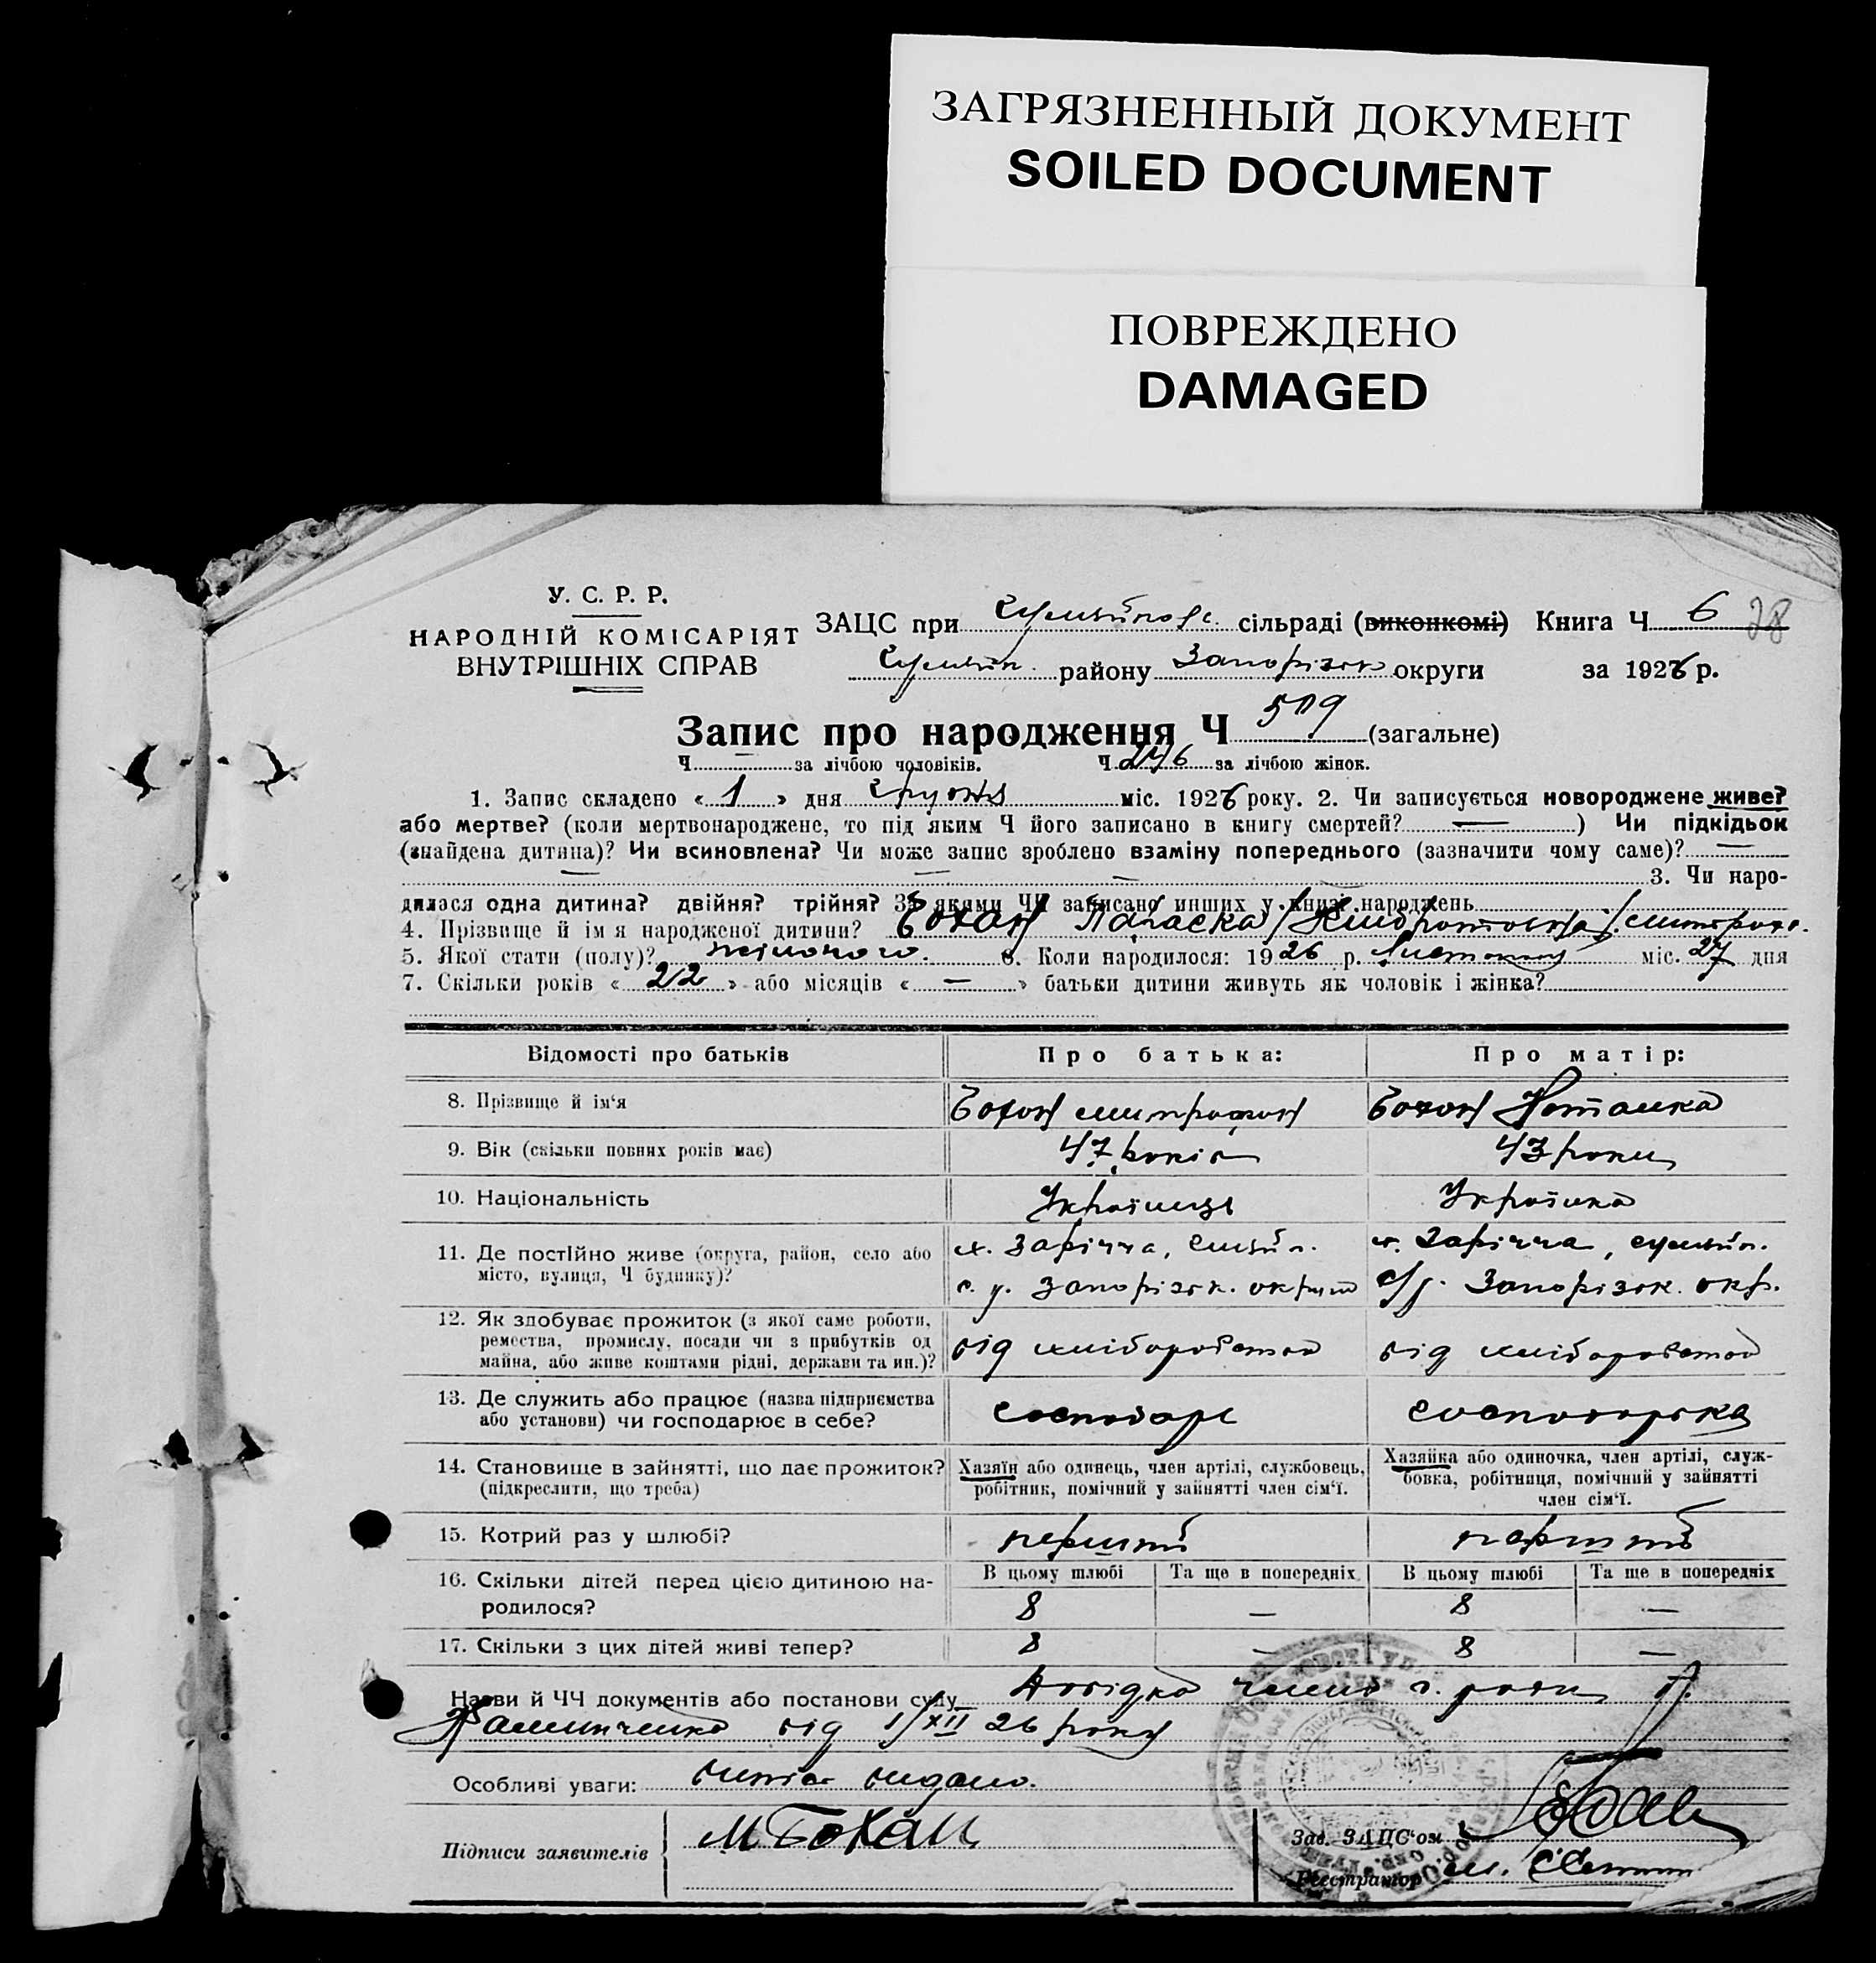 ЗАГРЯЗНЕННЫЙ ДОКУМЕНТ
SOILED DOCUMENT
ПОВРЕЖДЕНО
DAMAGED
У. С. Р. Р.
НАРОДНІЙ КОМІСАРІЯТ
ВНУТРІШНІХ СПРАВ
ЗАЦС при сільраді (виконкомі) Книга Ч 6 28
району Запорізьк округи за 1926 р.
Запис про народження Ч 519 (загальне)
Ч за лічбою чоловіків. Ч 246 за лічбою жінок.
1. Запис складено « 1 » дня грудня міс. 1926 року. 2. Чи записується новороджене живе?
або мертве? (коли мертвонароджене, то під яким Ч його записано в книгу смертей? — ) Чи підкідьок
(знайдена дитина)? Чи всиновлена? Чи може запис зроблено взаміну попереднього (зазначити чому саме)? —
— — — 3. Чи наро-
дилася одна дитина? двійня? трійня? За якими ЧЧ записано инших у книзі народжень
4. Прізвище й ім я народженої дитини? Бохан Параска
5. Якої стати (полу)? жіночого. 6. Коли народилося: 1926 р. Листопад міс. 27 дня
7. Скільки років « 22 » або місяців « — » батьки дитини живуть як чоловік і жінка?
Відомості про батьків Про батька: Про матір:
8. Прізвище й ім'я Бохан Митрофан Бохан Наталка
9. Вік (скільки повних років має) 47 років 43 роки
10. Національність Українець Українка
11. Де постійно живе (округа, район, село або місто, вулиця, Ч будинку)?
х. Зарічча, х. Зарічча,
Запорізьк. округи с/р. Запорізьк. окр.
12. Як здобуває прожиток (з якої саме роботи,
ремества, промислу, посади чи з прибутків од
майна, або живе коштами рідні, держави та ин.)? від хліборобства від хліборобства
13. Де служить або працює (назва підприємства
або установи) чи господарює в себе? господарь господарька
14. Становище в зайнятті, що дає прожиток?
(підкреслити, що треба)
Хазяїн або одинець, член артілі, службовець,
робітник, помічний у зайнятті член сім'ї.
Хазяйка або одиночка, член артілі, служ-
бовка, робітниця, помічний у зайнятті
член сім'ї.
15. Котрий раз у шлюбі? перший перший
16. Скільки дітей перед цією дитиною на-
родилося?
В цьому шлюбі Та ще в попередніх В цьому шлюбі Та ще в попередніх
8 — 8 —
17. Скільки з цих дітей живі тепер? 8 — 8 —
Назви й ЧЧ документів або постанови суду Довідка
від 1/XII 26 року
Особливі уваги: витяг видано.
Підписи заявителів М Бохан
Зав. ЗАЦС'ом
Реєстратор